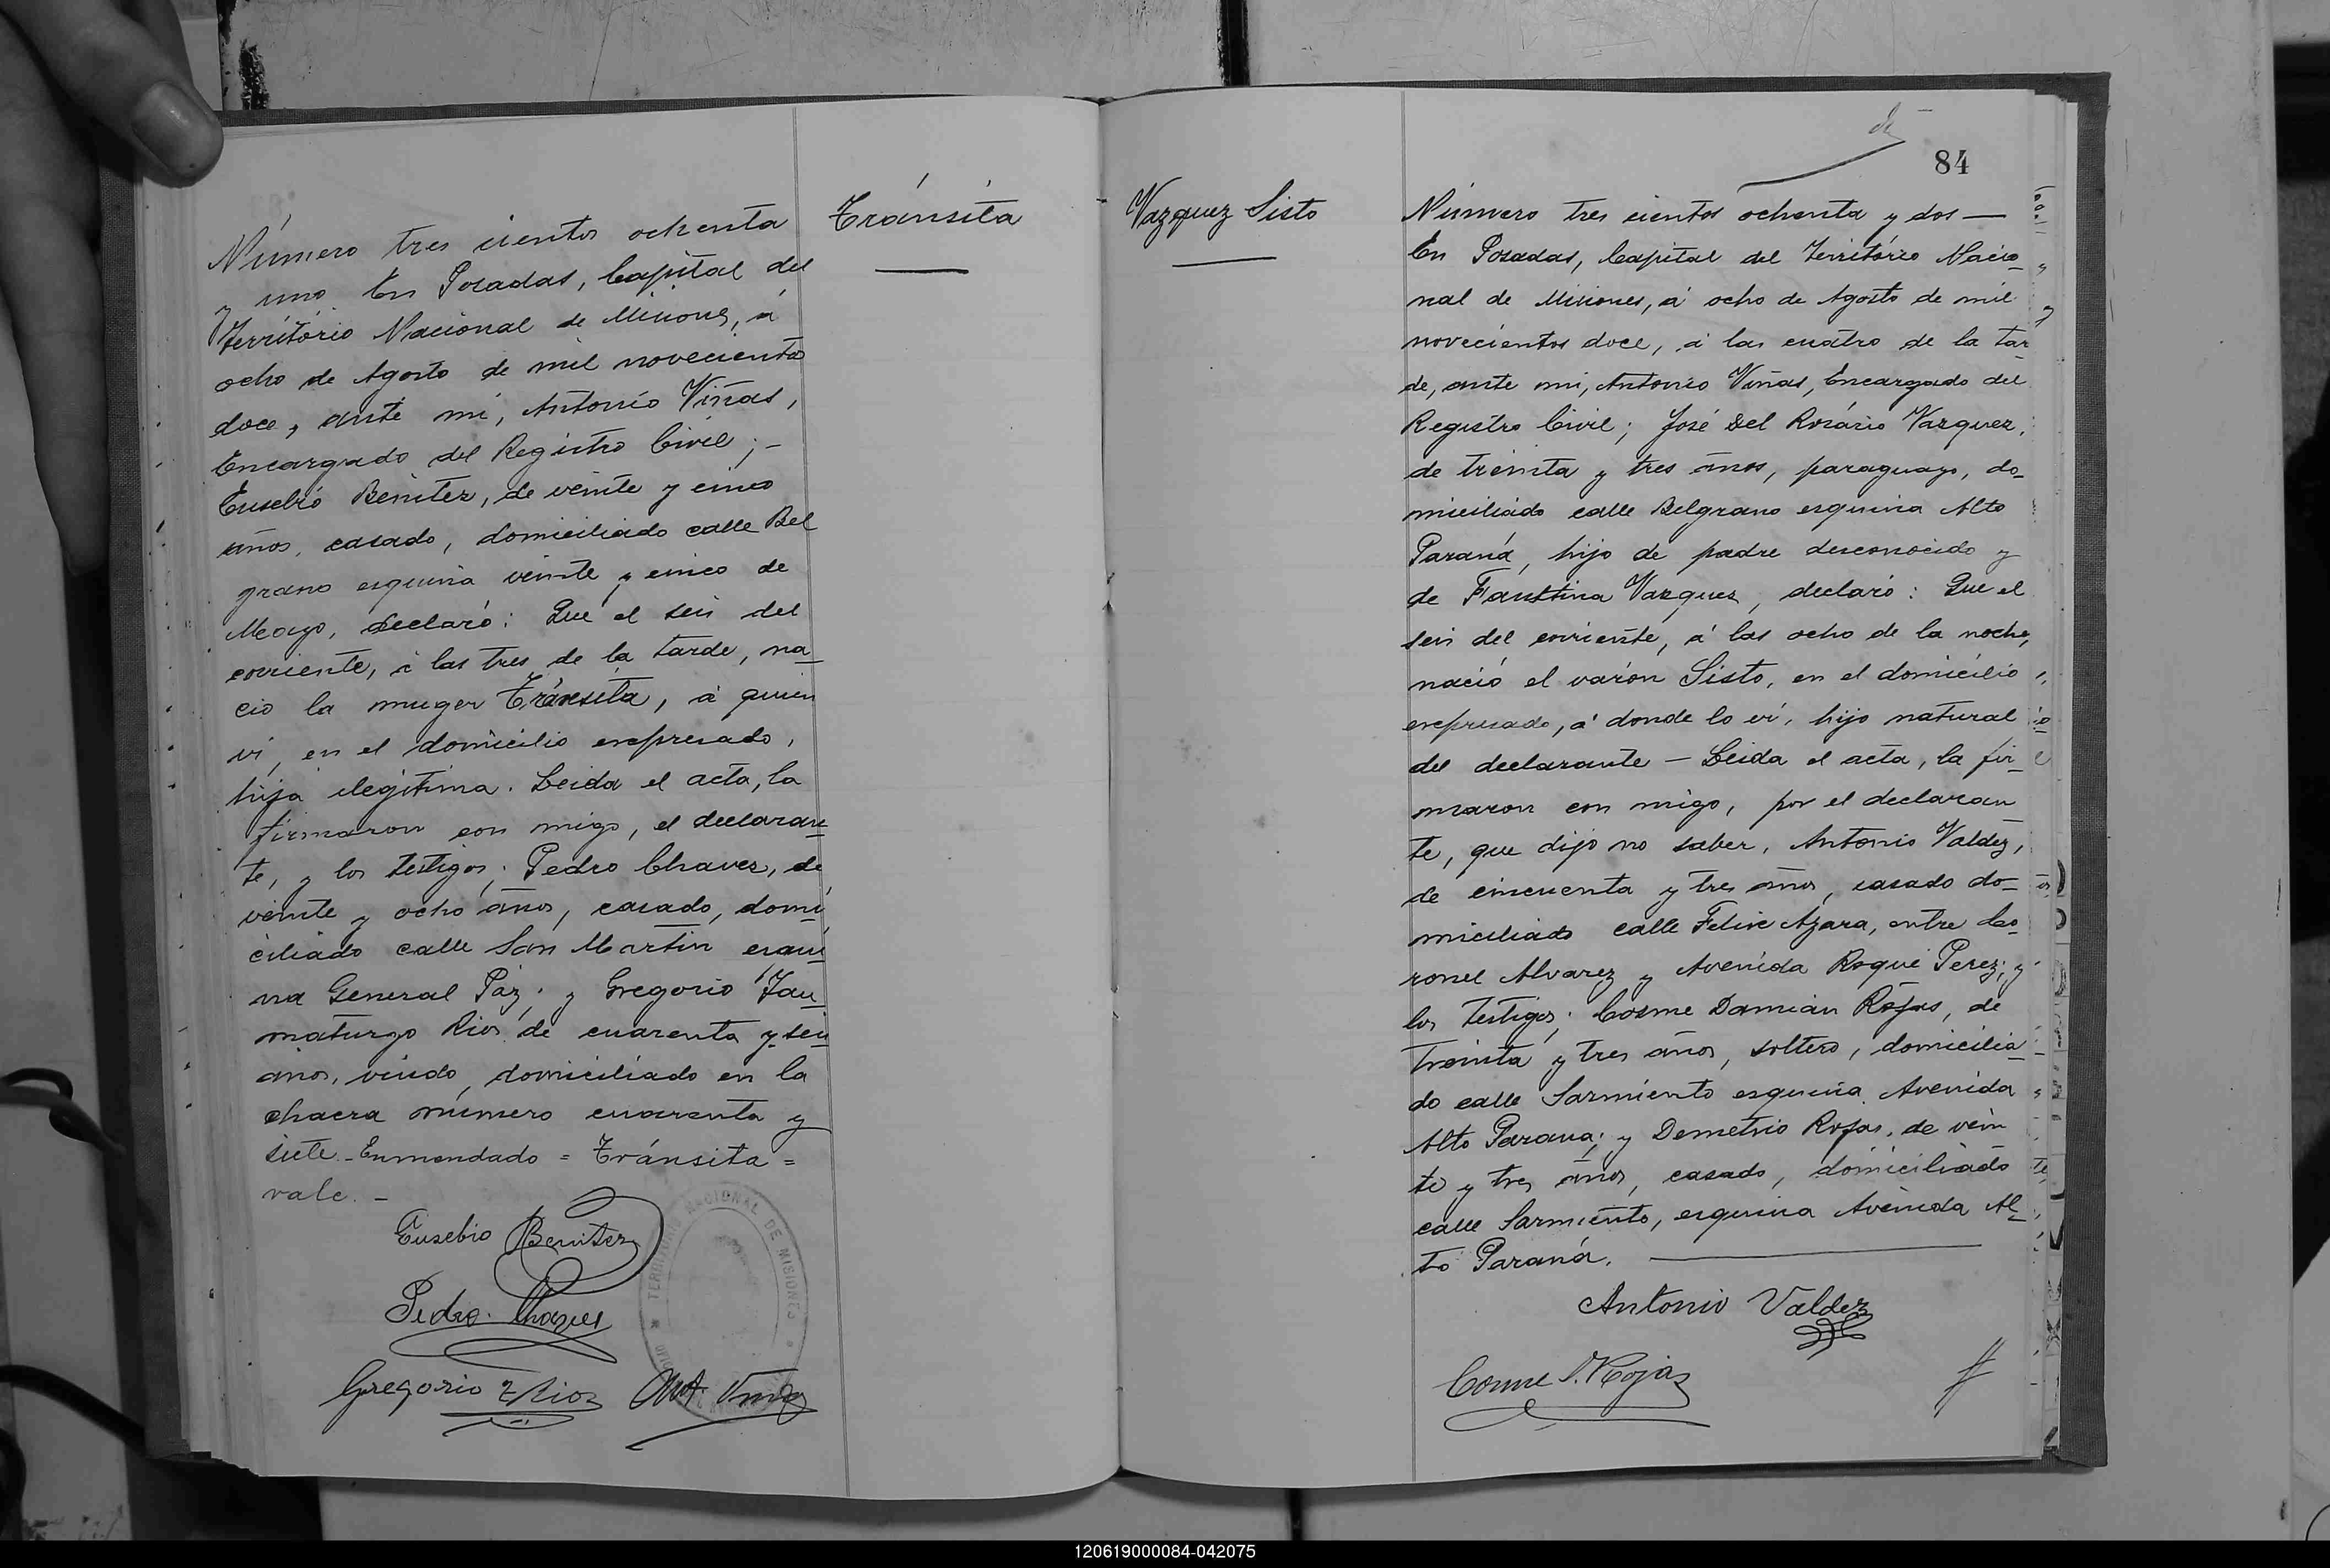 Número tres cientos ochenta
y uno. En Posadas, Capital del
Território Nacional de Misiones, á
ocho de Agosto de mil novecientos
doce, ante mi, Antonio Viñas,
Encargado del Registro Civil; -
Eusebio Benitez, de veinte y cinco
años, casado, domiciliado calle Bel
grano esquina veinte y cinco de
Mayo, declaró: Que el seis del
corriente, á las tres de la tarde, na_
ció la muger Tránsita, á quien
vi, en el domicilio expresado,
hija ilegitima. Leida el acta, la
firmaron con migo, el declaran_
te, y los testigos; Pedro Chavez, de
veinte y ocho años, casado, domi_
ciliado calle San Martin esqui_
na General Paz; y Gregorio Tau_
maturgo Rios, de cuarenta y seis
años, viudo, domiciliado en la
chacra número cuarenta y
siete. - Enmendado = Tránsita =
vale. -
Eusebio Benitez
Pedro Chavez
Gregorio T Rios Ant. Viñas
TERRITORIO NACIONAL DE MISIONES
Tránsita
Vazquez Sisto
84
Número tres cientos ochenta y dos —
En Posadas, Capital del Território Nacio_
nal de Misiones, á ocho de Agosto de mil
novecientos doce, á las cuatro de la tar
de, ante mi, Antonio Viñas, Encargado del
Registro Civil; José Del Rosário Vazquez,
de treinta y tres años, paraguayo, do_
miciliado calle Belgrano esquina Alto
Paraná, hijo de padre desconocido y
de Faustina Vazquez, declaró: Que el
seis del corriente, á las ocho de la noche,
nació el varón Sisto, en el domicilio
expresado, á donde lo vi, hijo natural
del declarante — Leida el acta, la fir_
maron con migo, por el declaran
te, que dijo no saber, Antonio Valdez,
de cincuenta y tres años, casado do_
miciliado calle Felix Azara, entre Co_
ronel Alvarez y Avenida Roque Perez; y
los testigos; Cosme Damián Rojas, de
treinta y tres años, soltero, domicilia_
do calle Sarmiento esquina Avenida
Alto Parana; y Demetrio Rojas, de vein
te y tres años, casado, domiciliado
calle Sarmiento, esquina Avenida Al_
to Paraná.
Antonio Valdez
Cosme D. Rojas
120619000084-042075